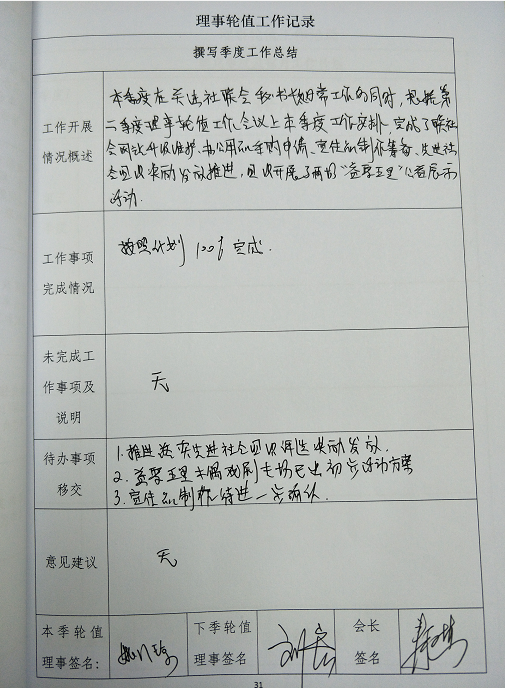 理事轮值工作记录
撰写季度工作总结
工作开展
情况概述
本季度在关注社联会秘书处日常工作的同时，根据第
二季度理事轮值工作会议上本季度工作安排，完成了联社
会网站升级维护、办公用品采购申请、宣传品制作筹备、先进社
会组织奖励发放推进，组织开展了两场“益聚五里”公益展示
活动.
工作事项
完成情况
按照计划 100% 完成.
未完成工
作事项及
说明
无
待办事项
移交
1. 推进落实先进社会组织评选奖励发放.
2. 益聚五里木偶戏剧专场已出初步活动方案
3. 宣传品制作待进一步确认.
意见建议
无
本季轮值
理事签名:
下季轮值
理事签名
会长
签名
31